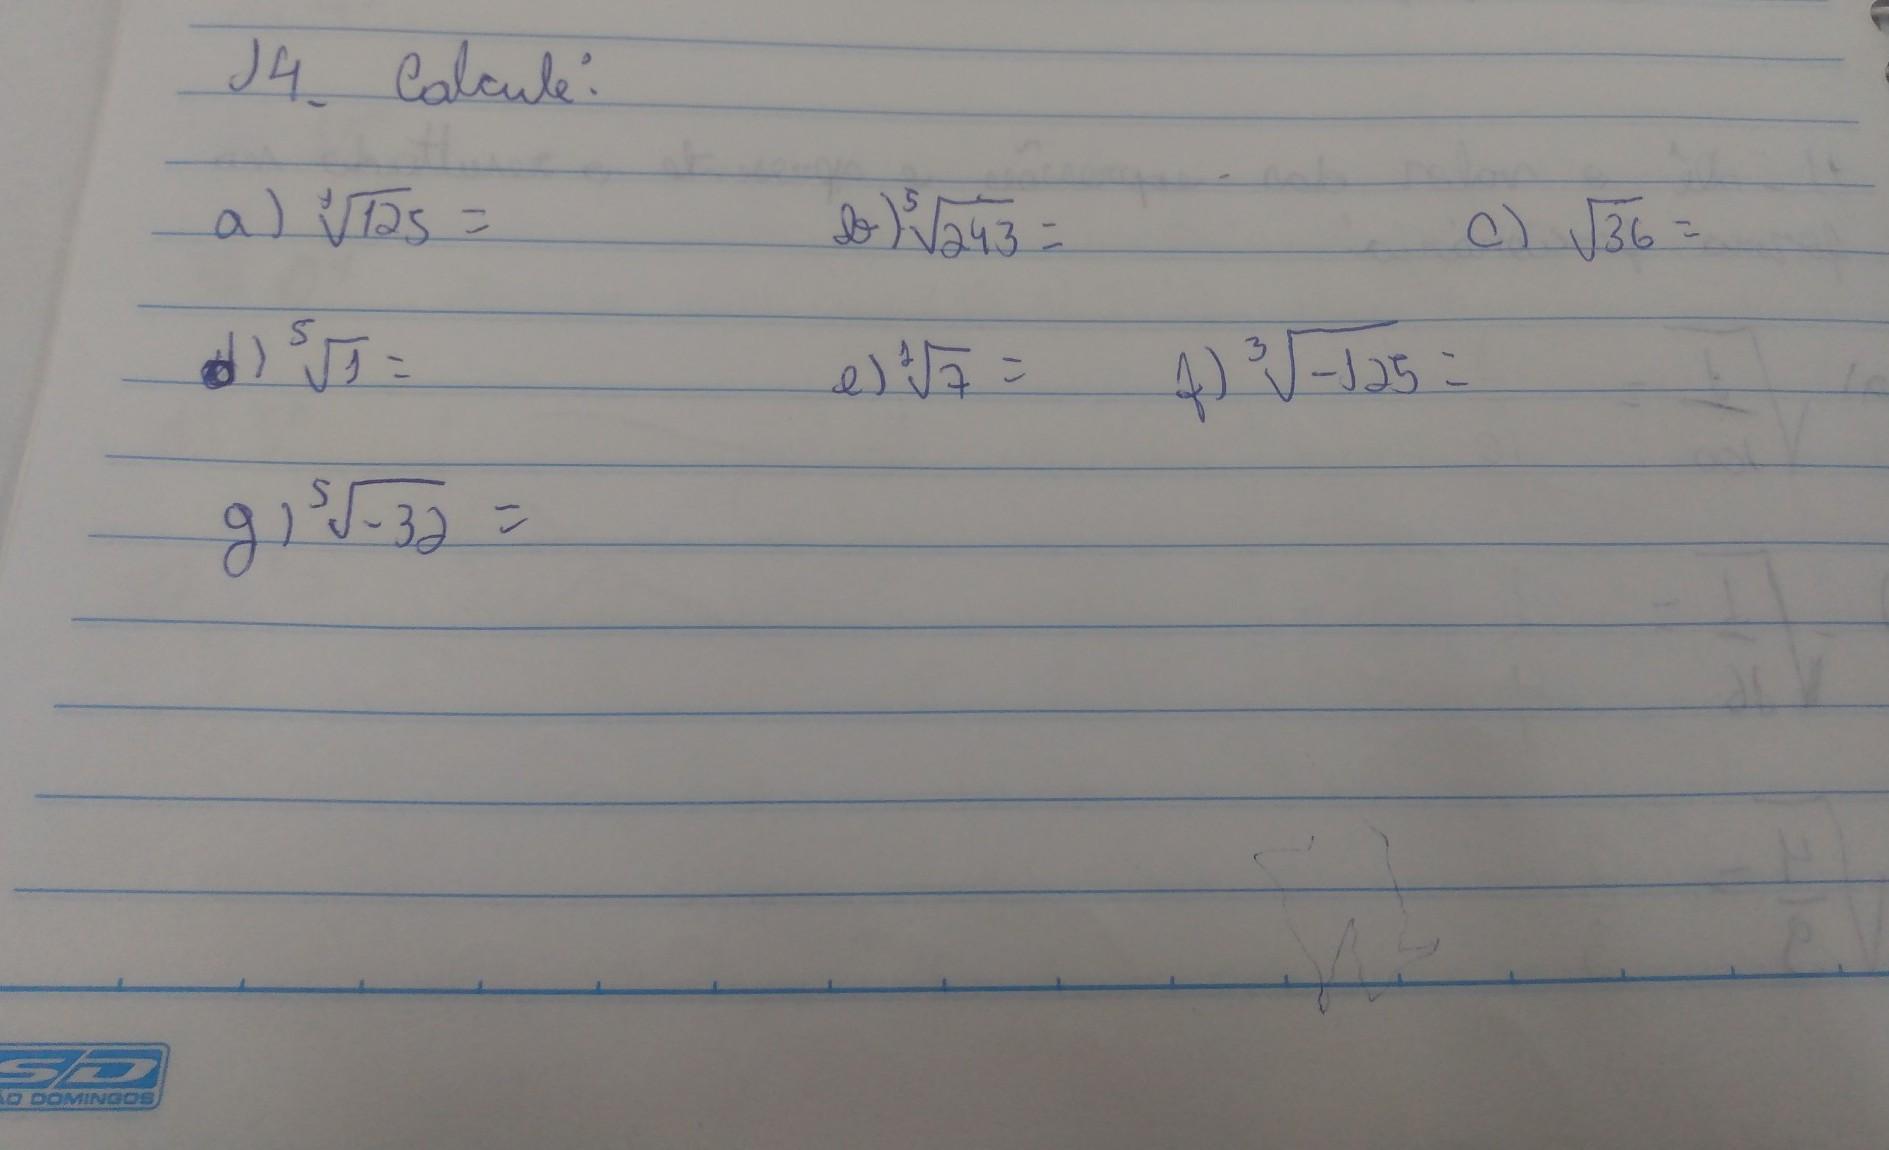 14- Calcule:
a) ³√125 = b) ⁵√243 = c) √36 =
d) ⁵√1 = e) ¹√7 = f) ³√-125 =
g) ⁵√-32 =
SD
ÃO DOMINGOS